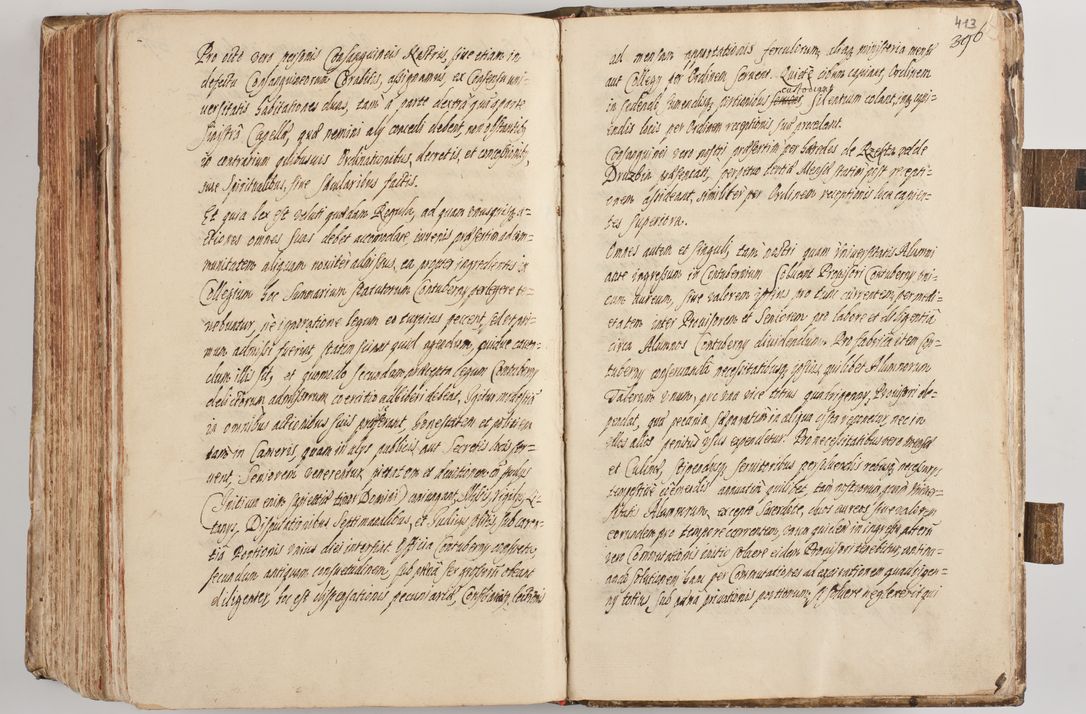 Pro octo vero personis Consanguineis Nostris, sive etiam in
defectu Consanguineorum Cognatis, assignamus, ex Consensu uni=
versitatis habitationes duas, tam a parte dextra quam a parte
sinistra Capellæ, quæ nemini alij concedi debent, non obstantibus
in contrarium quibusvis Ordinationibus, decretis, et concessionibus
sive Spiritualibus, sive Sæcularibus factis.
Et quia lex est veluti quædam Regula, ad quam unusquisque a=
ctiones omnes suas debet accomodare iuvenis præsertim ad com=
munitatem aliquam noviter admissus, ea propter ingredientes in
Collegium hoc Summarium Statutorum Contuberny perlegere te=
nebuntur, ne ignoratione legum eo turpius peccent, sed ut pri=
mum admissi fuerint, statim sciant quid agendum, quidve caven=
dum illis sit, et quomodo secundum præscripta legum Contuberny
delictorum admissorum coercitio adhiberi debeat, Igitur modestiam
in omnibus actionibus suis præferant, honestatem et politiem
tam in Cameris quam in alijs publicis aut Secretis locis ser=
vent, Seniorem venerentur, pietatem et devotionem in primis
(Initium enim sapientiæ timor Domini) coniungant, Missis, Vigilijs, Li=
tanijs, Disputationibus Septimanalibus, et Prandijs istis, sub caren=
tia Portionis unius diei intersint. Officia Contuberny consueta
secundum antiquam consuetudinem, sub pœna per
diligenter, hoc est dispensationis pecuniariæ, lectionis
413
396
ad mensam apportationis ferculorum, aliaque ministeria mensæ
aut Collegij per Ordinem servent. Quiete cibum capiant, Ordinem
in sedendo, eundisque, portionibus custodiant, silentium colant, inque cupi=
endis locis per Ordinem receptionis suæ procedant.
Consanguinei vero nostri præsertim per hæredes de Rzeplin valde
Druzbin præsentati, perpetuo tertiæ Mensæ statim post recepti=
onem assideant, similiter per Ordinem receptionis loca capien=
tes superiora.
Omnes autem et singuli, tam nostri quam Universitatis Alumni
ante ingressum in Contubernium Solvant Provisori Contuberny uni=
cum aureum, sive valorem ipsius pro tunc currentem, per medi=
etatem inter Provisorem et Seniorem pro labore et diligentia
circa Alumnos Contuberny dividendum. Pro fabrica item Con=
tuberny conservanda necessitatibusque ipsius, quilibet Alumnorum
Talerum unum, pro una vice totius quadrigenij, Provisori de=
pendat, quæ pecunia separatim in aliqua cista reponetur, nec in
ullos alios penitus usus expendetur. Pro necessitatibus vero mensæ
et Culinæ, stipendijsque servitoribus persolvendis rebusque necessarijs
tempestive coëmendis annuatim quilibet, tam nostrorum quam Univer=
sitatis Alumnorum, excepto Sacerdote, duos aureos sive valorem
eorundem pro tempore currentem, unum quidem in ingressu alterum
vero Commutationis initio solvere eidem Provisori tenebitur continu=
ando solutionem hanc per Commutationes ad expirationem quadrigen=
ij totius, sub pœna privationis portionum, si solvere neglexerit qui